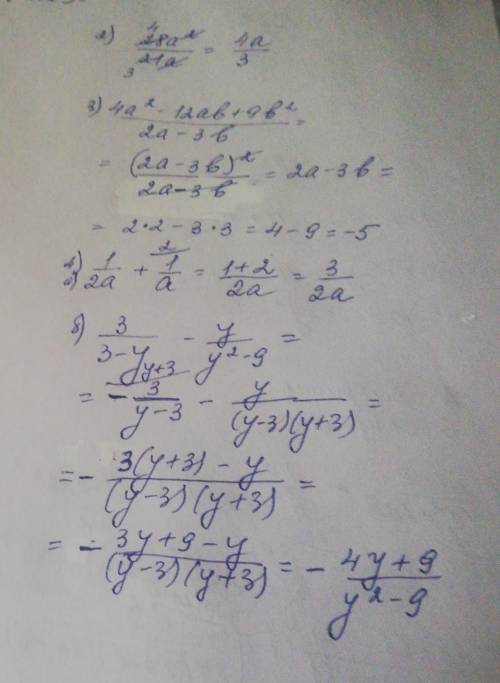 2) 28a²/21a = 4a/3
4
3
3) (4a² - 12ab + 9b²)/(2a - 3b) =
= (2a - 3b)²/(2a - 3b) = 2a - 3b =
= 2*2 - 3*3 = 4 - 9 = -5
4)
a) 1/2a + 1/a = (1+2)/2a = 3/2a
2
б) 3/(3-y) - y/(y²-9) =
y+3
= - 3/(y-3) - y/((y-3)(y+3)) =
= - (3(y+3) - y)/((y-3)(y+3)) =
= - (3y+9-y)/((y-3)(y+3)) = - (4y+9)/(y²-9)